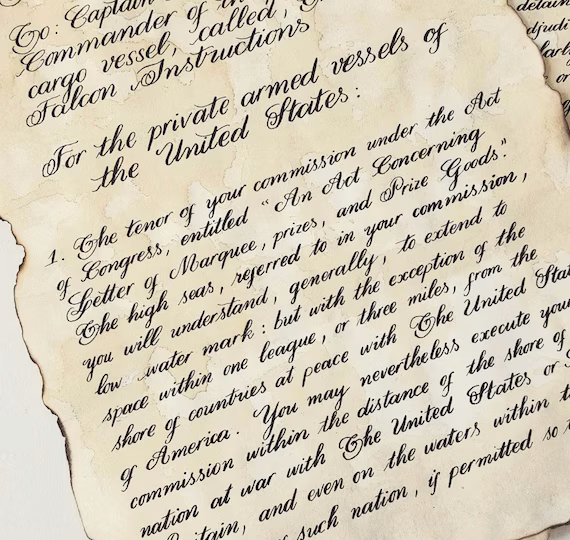 To: Captain
Commander of the
cargo vessel, called,
Falcon Instructions
For the private armed vessels of
the United States:
1. The tenor of your commission under the Act
of Congress, entitled "An Act Concerning
Letter of Marquee, prizes, and Prize Goods."
The high seas, referred to in your commission,
you will understand, generally, to extend to
low water mark: but with the exception of the
space within one league, or three miles, from the
shore of countries at peace with The United Stat
of America. You may nevertheless execute your
commission within the distance of the shore of
nation at war with The United States or
Britain, and even on the waters within t
such nation, if permitted so t
detain
djudi